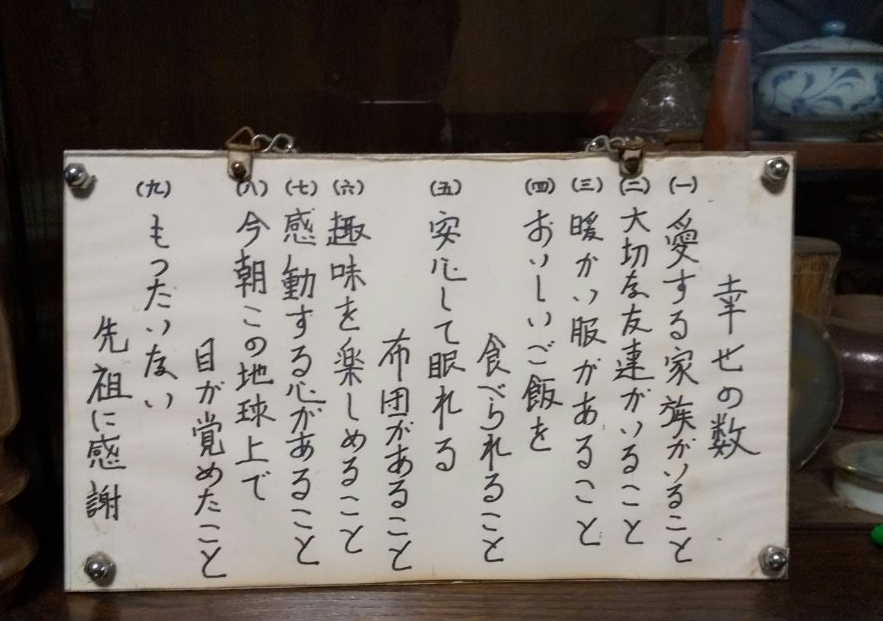 幸せの数
(一) 愛する家族がいること
(二) 大切な友達がいること
(三) 暖かい服があること
(四) おいしいご飯を
食べられること
(五) 安心して眠れる
布団があること
(六) 趣味を楽しめること
(七) 感動する心があること
(八) 今朝この地球上で
目が覚めたこと
(九) もったいない
先祖に感謝